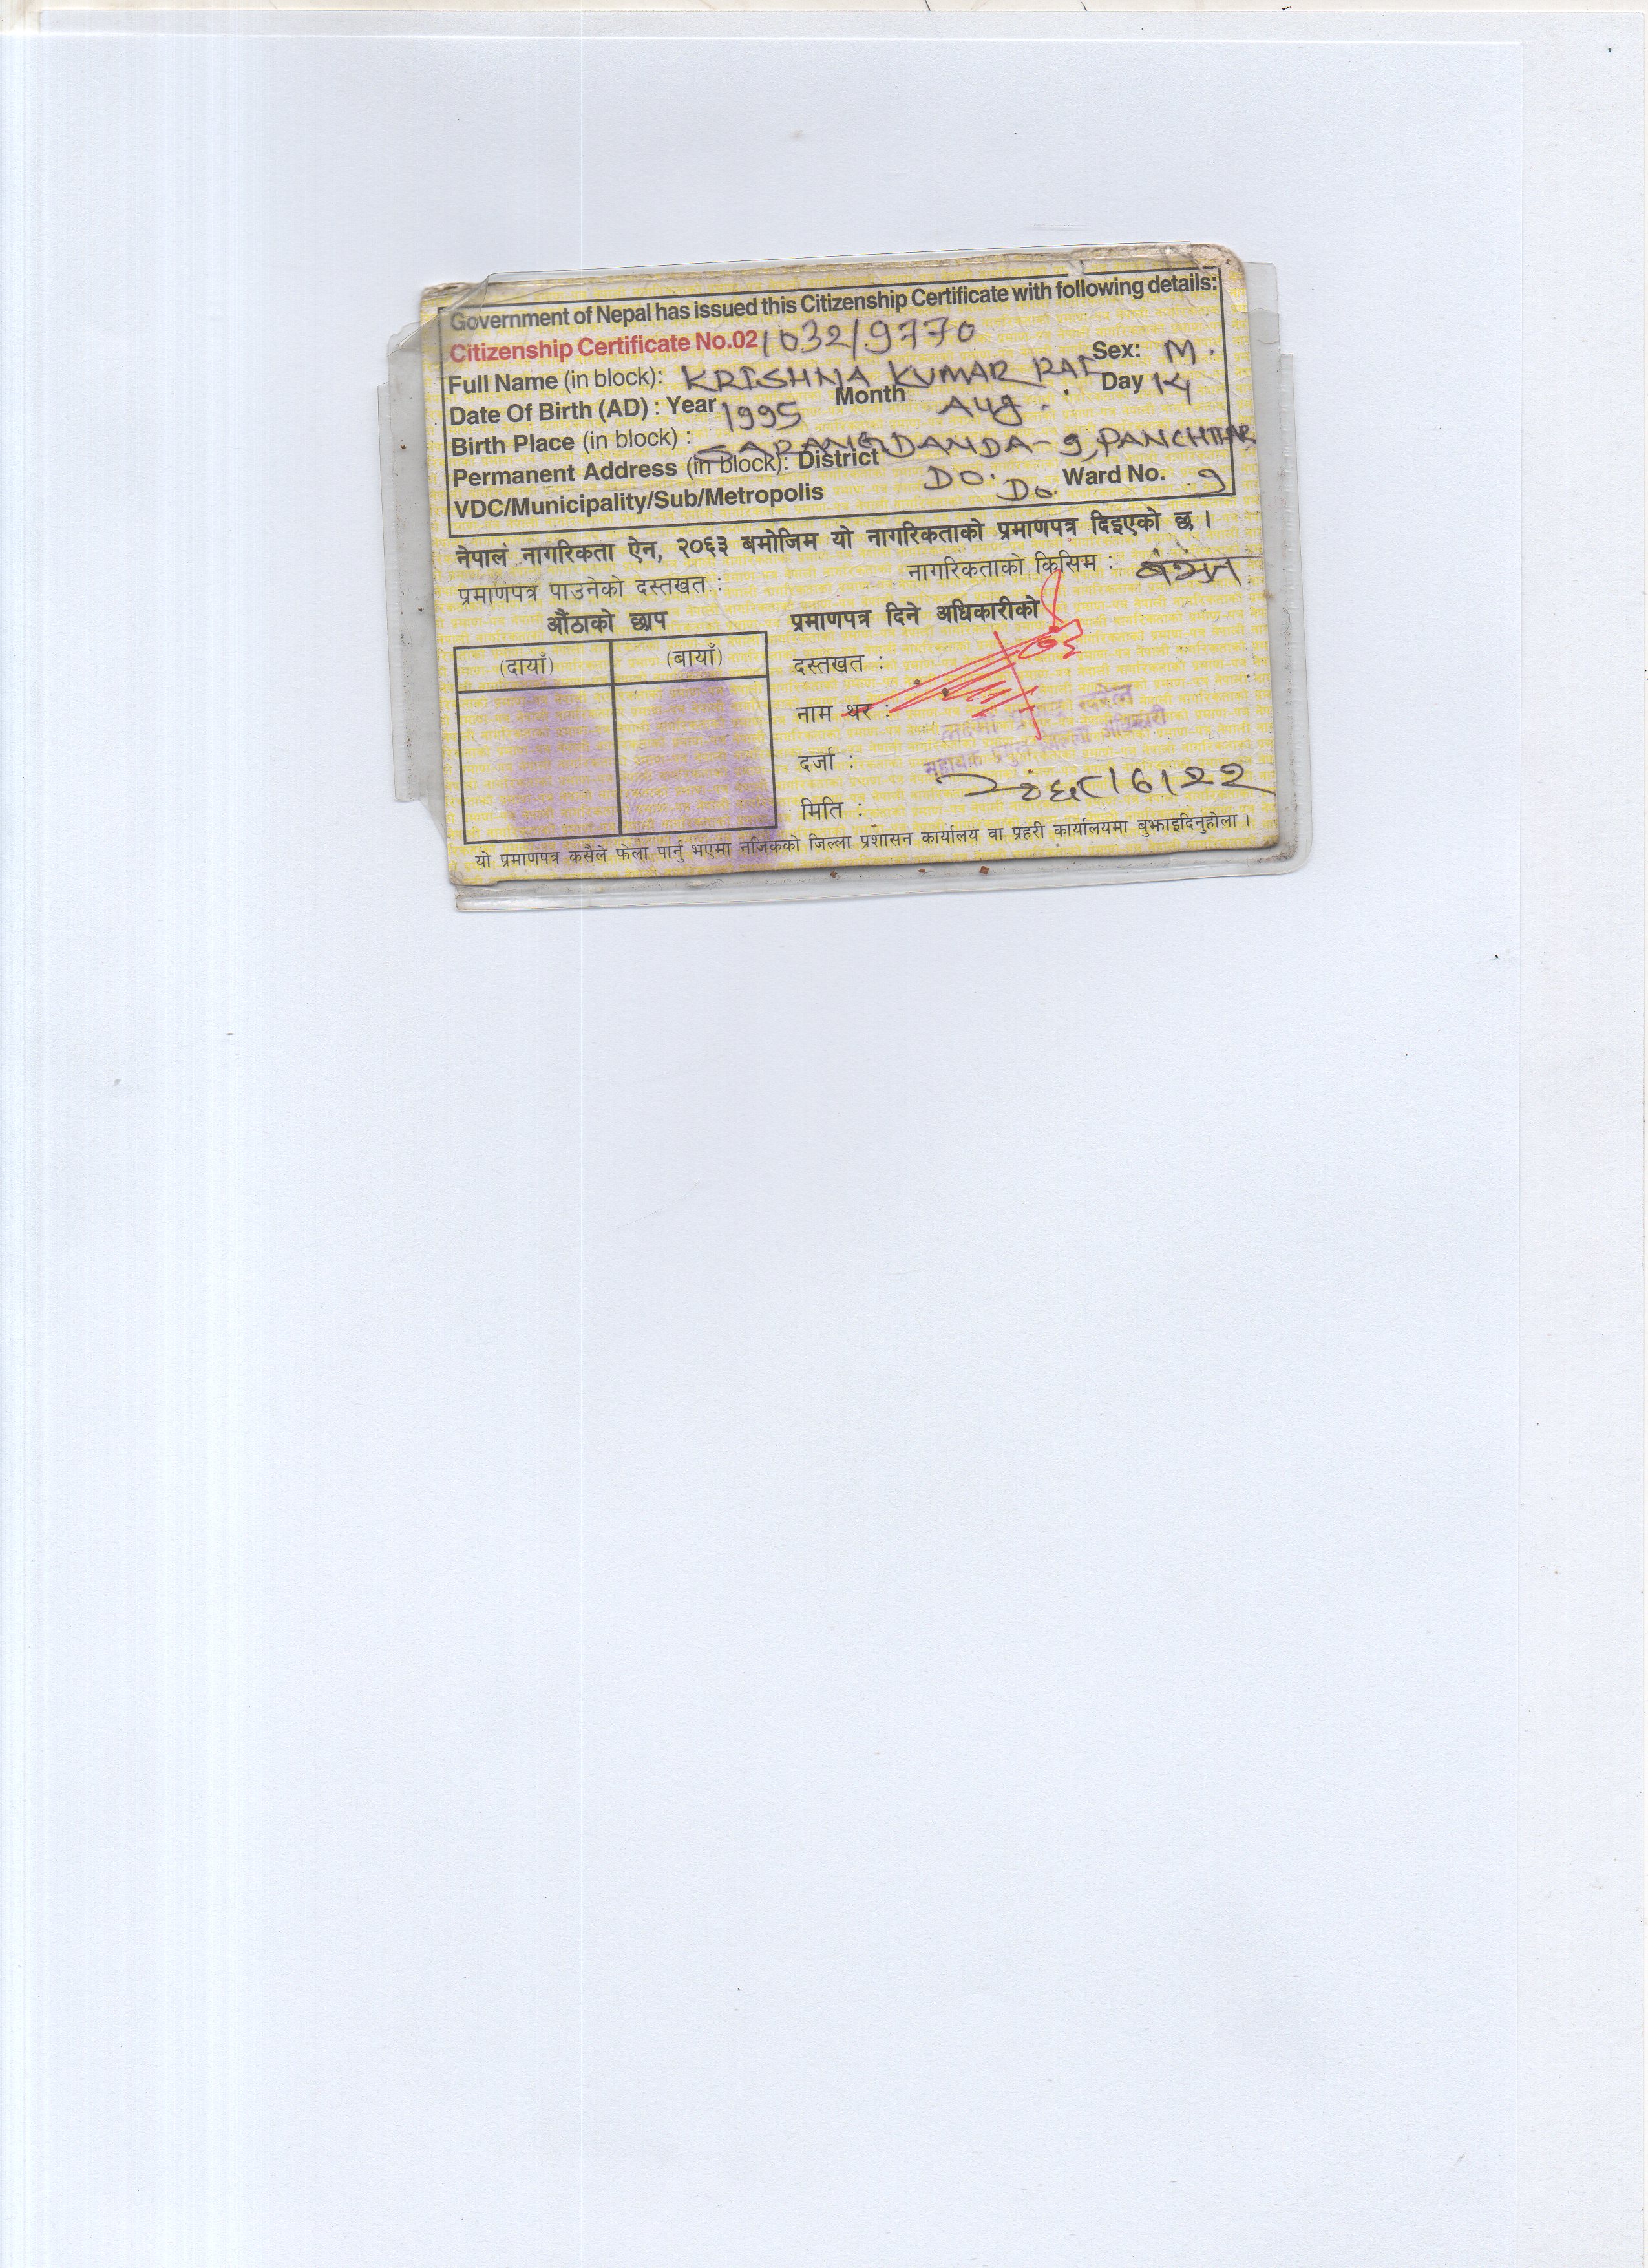 Government of Nepal has issued this Citizenship Certificate with following details:
Citizenship Certificate No.02/032/9770
Sex: M.
Full Name (in block): KRISHNA KUMAR RAI
Date Of Birth (AD) : Year 1995 Month Aug. Day 14
Birth Place (in block) : SARANGDANDA-9, PANCHTHAR
Permanent Address (in block): District DO.
VDC/Municipality/Sub/Metropolis Do. Ward No. 9
नेपाल नागरिकता ऐन, २०६३ बमोजिम यो नागरिकताको प्रमाणपत्र दिइएको छ ।
प्रमाणपत्र पाउनेको दस्तखत :
नागरिकताको किसिम : वंशज
औंठाको छाप
प्रमाणपत्र दिने अधिकारीको
(दायाँ) (बायाँ)
दस्तखत :
नाम थर :
दर्जा : सहायक प्रमुख जिल्ला अधिकारी
मिति : २०६८।6।२२
यो प्रमाणपत्र कसैले फेला पार्नु भएमा नजिकको जिल्ला प्रशासन कार्यालय वा प्रहरी कार्यालयमा बुझाइदिनुहोला ।